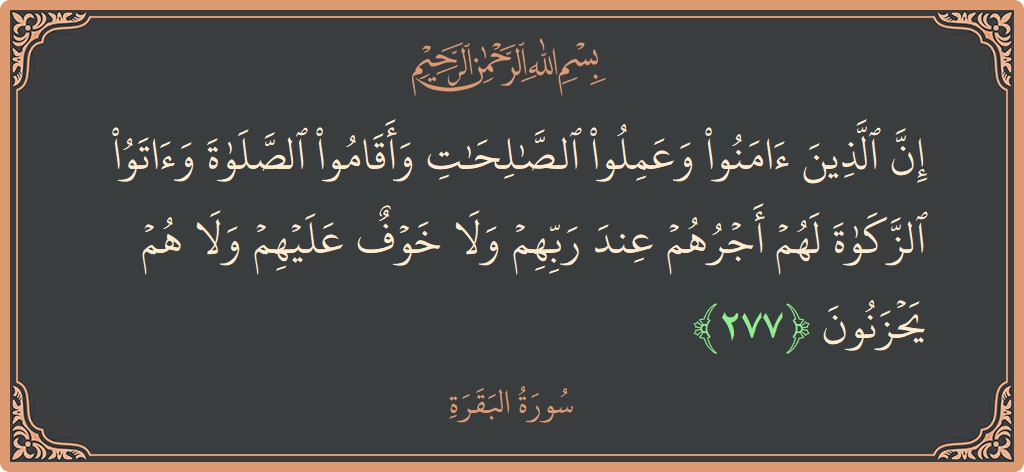 بِسْمِ اللهِ الرَّحْمٰنِ الرَّحِيْمِ
إِنَّ ٱلَّذِينَ ءَامَنُوا۟ وَعَمِلُوا۟ ٱلصَّـٰلِحَـٰتِ وَأَقَامُوا۟ ٱلصَّلَوٰةَ وَءَاتَوُا۟
ٱلزَّكَوٰةَ لَهُمۡ أَجۡرُهُمۡ عِندَ رَبِّهِمۡ وَلَا خَوۡفٌ عَلَيۡهِمۡ وَلَا هُمۡ
يَحۡزَنُونَ ﴿٢٧٧﴾
سُورَةُ البَقَرَةِ